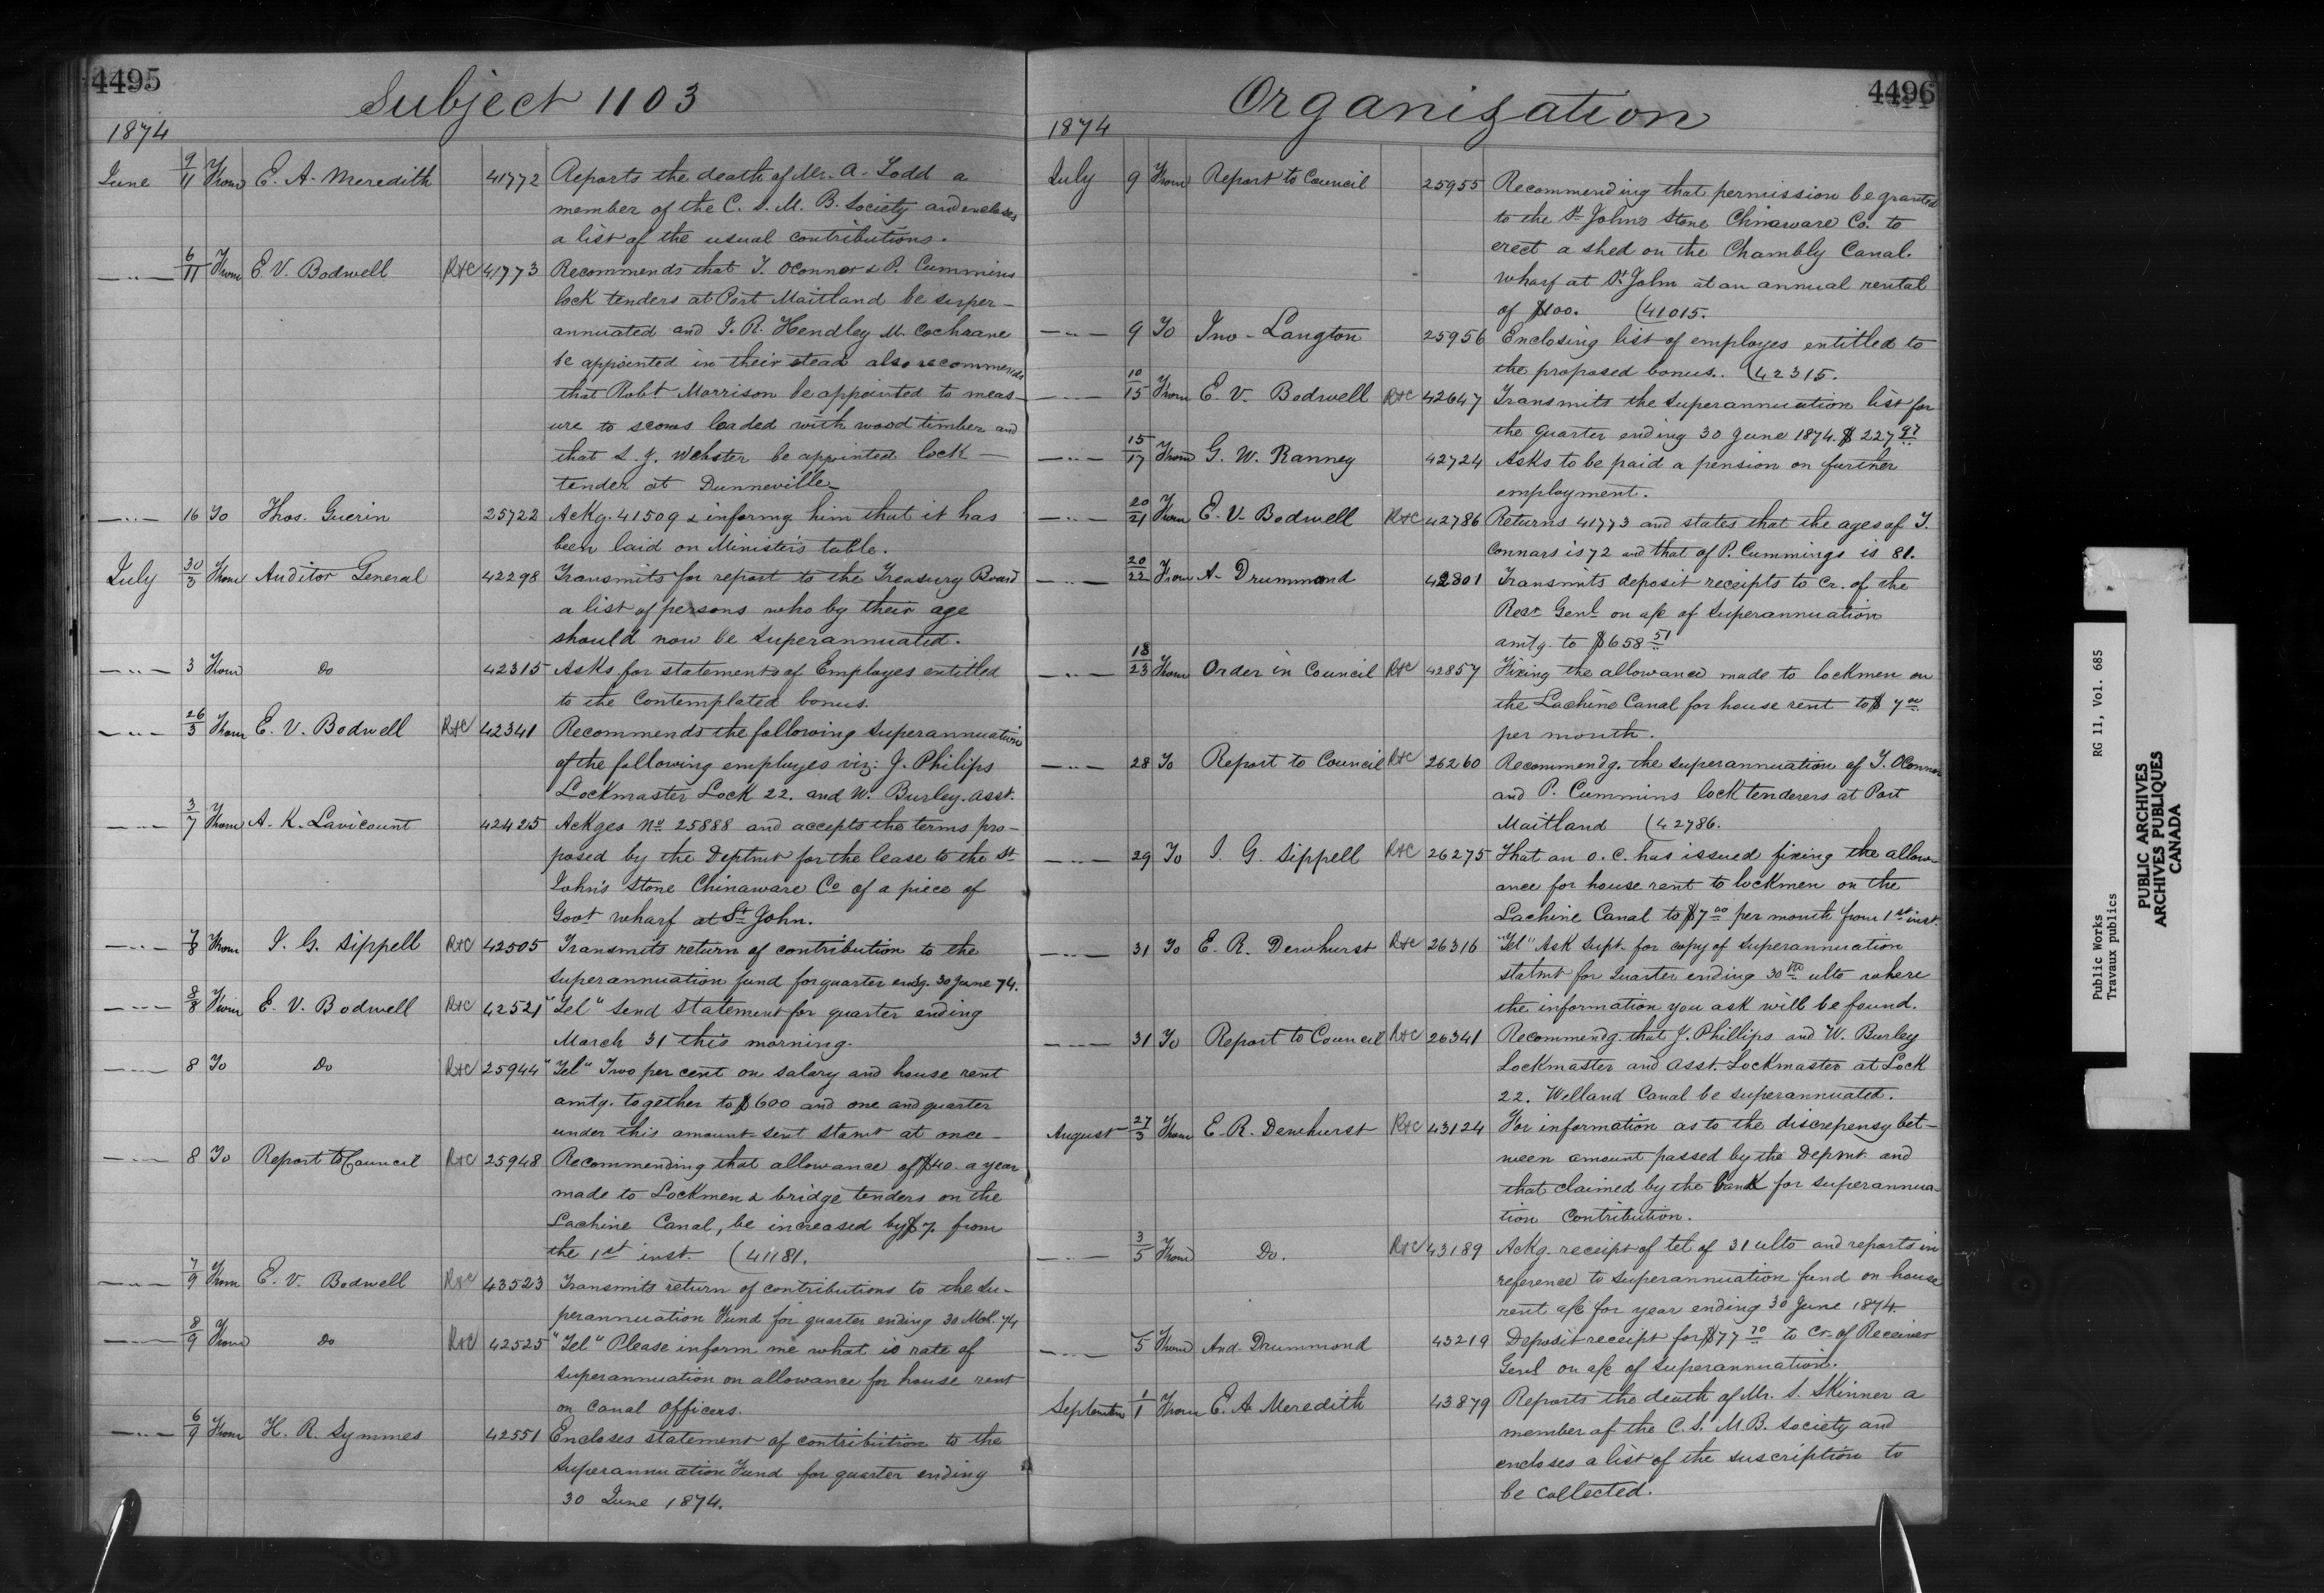 4495
Subject 1103
1874
June 9/11 From E. A. Meredith 41772 Reports the death of Mr. A. Todd a
member of the C. S. M. B. Society and encloses
a list of the usual contributions.
—"— 6/11 From E. V. Bodwell R&C 41773 Recommends that T. OConnor & P. Cummins
lock tenders at Port Maitland be super-
annuated and J. R. Hendley M. Cochrane
be appointed in their stead also recommends
that Robt Morrison be appointed to meas-
ure to scows loaded with wood timber and
that L. J. Webster be appointed lock-
tender at Dunneville
—"— 16 To Thos. Guerin 25722 Ackg. 41509 & informg him that it has
been laid on Minister's table.
July 30/3 From Auditor General 42298 Transmits for report to the Treasury Board
a list of persons who by their age
should now be superannuated.
—"— 3 From Do 42315 Asks for statement of Employes entitled
to the Contemplated bonus.
—"— 26/3 From E. V. Bodwell R&C 42341 Recommends the following superannuation
of the following employes viz: J. Philips
Lockmaster Lock 22. and W. Burley. asst.
—"— 3/7 From A. K. Lavicount 42425 Ackges No 25888 and accepts the terms pro-
posed by the Deptmt for the lease to the St
John's Stone Chinaware Co of a piece of
Govt wharf at St John.
—"— 7/8 From J. G. Sippell R&C 42505 Transmits return of contribution to the
superannuation fund for quarter endg. 30 June 74.
—"— 8/8 From E. V. Bodwell R&C 42521 "Tel" Send statement for quarter ending
March 31 this morning.
—"— 8 To Do R&C 25944 "Tel" Two per cent on salary and house rent
amtg. together to $600 and one and quarter
under this amount sent stamt at once
—"— 8 To Report to Council R&C 25948 Recommending that allowance of $40. a year
made to Lockmen & bridge tenders on the
Lachine Canal, be increased by $7. from
the 1st inst. (41181.
—"— 7/9 From E. V. Bodwell R&C 43523 Transmits return of contributions to the Su-
perannuation Fund for quarter ending 30 Mch. 74
—"— 8/9 From Do R&C 42525 "Tel" Please inform me what is rate of
superannuation on allowance for house rent
on Canal Officers.
—"— 6/9 From H. R. Symmes 42551 Encloses statement of contribution to the
Superannuation Fund for quarter ending
30 June 1874.
4496
Organization
1874
July 9 From Report to Council 25955 Recommending that permission be granted
to the St John's Stone Chinaware Co. to
erect a shed on the Chambly Canal.
wharf at St John at an annual rental
of $100. (41015.
—"— 9 To Jno. Langton 25956 Enclosing list of employes entitled to
the proposed bonus. (42315.
—"— 10/15 From E. V. Bodwell R&C 42647 Transmits the superannuation list for
the quarter ending 30 June 1874. $227 97
—"— 15/17 From G. W. Ranney 42724 Asks to be paid a pension on further
employment.
—"— 20/21 From E. V. Bodwell R&C 42786 Returns 41773 and states that the ages of T.
Connars is 72 and that of P. Cummings is 81.
—"— 20/22 From A. Drummond 42801 Transmits deposit receipts to Cr. of the
Recr Genl on a/c of superannuation
amtg. to $658 51
—"— 18/23 From Order in Council R&C 42857 Fixing the allowance made to lockmen on
the Lachine Canal for house rent to $7 00
per month.
—"— 28 To Report to Council R&C 26260 Recommendg. the superannuation of T. OConnor
and P. Cummins lock tenderers at Port
Maitland (42786.
—"— 29 To J. G. Sippell R&C 26275 That an O. C. has issued fixing the allow-
ance for house rent to lockmen on the
Lachine Canal to $7 00 per month from 1st inst.
—"— 31 To E. R. Dewhurst R&C 26316 "Tel" Ask Supt. for copy of superannuation
statmt for Quarter ending 30th ulto where
the information you ask will be found.
—"— 31 To Report to Council R&C 26341 Recommendg. that J. Phillips and W. Burley
Lockmaster and asst. Lockmaster at Lock
22. Welland Canal be superannuated.
August 27/3 From E. R. Dewhurst R&C 43124 For information as to the discrepensy bet-
ween amount passed by the Depmt. and
that claimed by the bank for superannua-
tion Contribution.
—"— 3/5 From Do. R&C 43189 Ackg. receipt of tel of 31 ulto and reports in
reference to superannuation fund on house
rent a/c for year ending 30 June 1874.
—"— 5 From And. Drummond 43219 Deposit receipt for $77 70 to Cr. of Receiver
Genl on a/c of superannuation.
September 1/1 From E. A. Meredith 43879 Reports the death of Mr. S. Skinner a
member of the C. S. M. B. Society and
encloses a list of the suscription to
be collected.
Public Works RG 11, Vol. 685
Travaux publics
PUBLIC ARCHIVES
ARCHIVES PUBLIQUES
CANADA